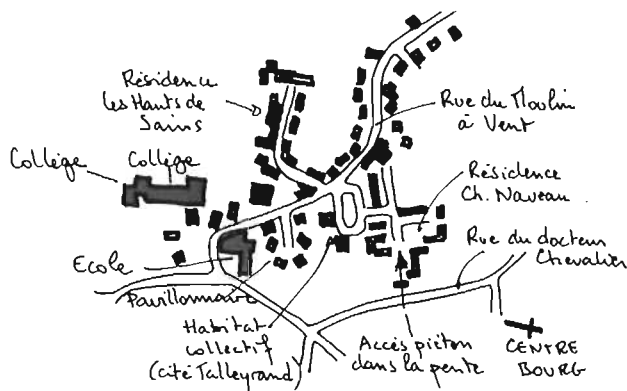 Résidence
les Hauts de
Sains
Rue du Moulin
à Vent
Collège
Collège
Résidence
Ch. Naveau
Rue du docteur
Chevalier
Ecole
Pavillonnaire
Habitat
collectif
(Cité Talleyrand)
Accès piéton
dans la pente
CENTRE
BOURG